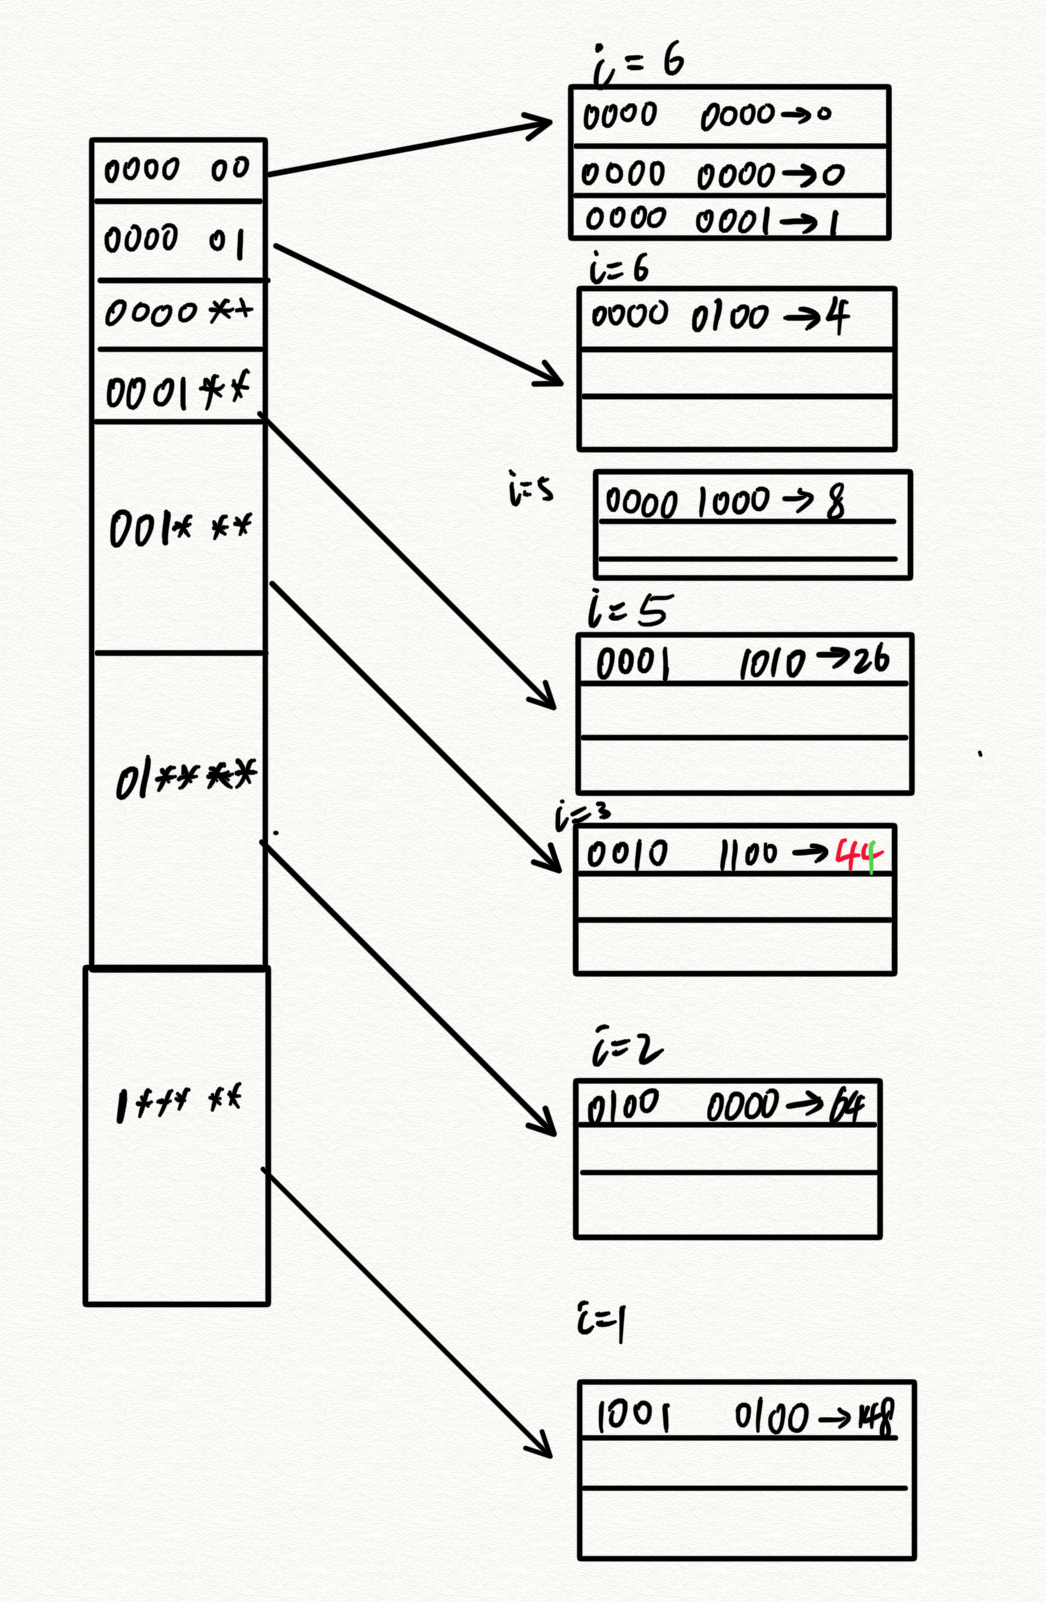 0000 00
0000 01
0000 **
0001 **
001* **
01** **
1*** **
i=6
0000 0000→0
0000 0000→0
0000 0001→1
i=6
0000 0100→4
i=5
0000 1000→8
i=5
0001 1010→26
i=3
0010 1100→44
i=2
0100 0000→64
i=1
1001 0100→148